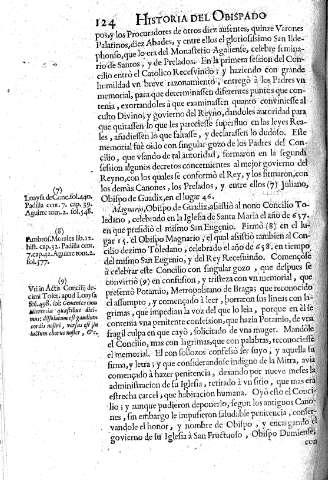 124 HISTORIA DEL OBISPADO
pos, y los Procuradores de otros diez ausentes, quinze Varones
Palatinos, diez Abades, y entre ellos el gloriosissimo San Ilde-
phonso, que lo era del Monasterio Agaliense, celebre semina-
rio de Santos, y de Prelados. En la primera session del Conci-
cilio entrò el Catolico Recesvindo; y haziendo con grande
humildad vn breve razonamiento, entregò à los Padres vn
memorial, para que determinassen diferentes puntos que con-
tenia, exortandoles à que examinassen quanto conviniesse al
culto Divino, y govierno del Reyno, dandoles autoridad para
que quitassen lo que les pareciesse superfluo en las leyes Rea-
les, añadiessen lo que faltasse, y declarassen lo dudoso. Este
memorial fuè oido con singular gozo de los Padres del Con-
cilio, que vsando de tal autoridad, formaron en la segunda
session algunos decretos concernientes al mejor govierno del
Reyno, con los quales se conformò el Rey, y los firmaron, con
los demàs Canones, los Prelados, y entre ellos (7) Juliano,
Obispo de Guadix, en el lugar 46.
Magnario, Obispo de Guadix, assistiò al nono Concilio To-
ledano, celebrado en la Iglesia de Santa Maria el año de 657,
en que presidiò el mismo San Eugenio. Firmò (8) en el lu-
gar 15. el Obispo Magnario; el qual assistiò tambien al Con-
cilio dezimo Toledano, celebrado el año de 658, en tiempo
del mismo San Eugenio, y del Rey Recesvindo. Començòse
à celebrar este Concilio con singular gozo, que despues se
convirtiò (9) en confusion, y tristeza con vn memorial, que
presentò Potamio, Metropolitano de Braga: que reconocido
el assumpto, y començado à leer, borraron sus lineas con la-
grimas, que impedian la voz del que lo leia, porque en èl se
contenia vna penitente confession, que hazia Potamio, de vna
fragil culpa en que cayò, solicitado de vna muger. Mandòle
el Concilio, mas con lagrimas, que con palabras, reconociesse
el memorial. El con sollozos confessò ser suyo, y aquella su
firma, y letra; y que considerandose indigno de la Mitra, avia
començado à hazer penitencia, dexando por nueve meses la
administracion de su Iglesia, retirado à vn sitio, que mas era
estrecha carcel, que habitacion humana. Oyò esto el Conci-
lio; y aunque pudieron deponerlo, segun los antiguos Cano-
nes, sin embargo le impusieron saludable penitencia, conser-
vandole el honor, y nombre de Obispo, y encargando el
govierno de su Iglesia à San Fructuoso, Obispo Dumiense,
con
(7)
Padilla cent. 7. cap. 39.
Aguirre tom. 2. fol. 548.
(8)
Morales lib. 12.
cap. 35. Padilla cent.
7. cap. 42. Aguirre tom. 2.
fol. 577.
(9)